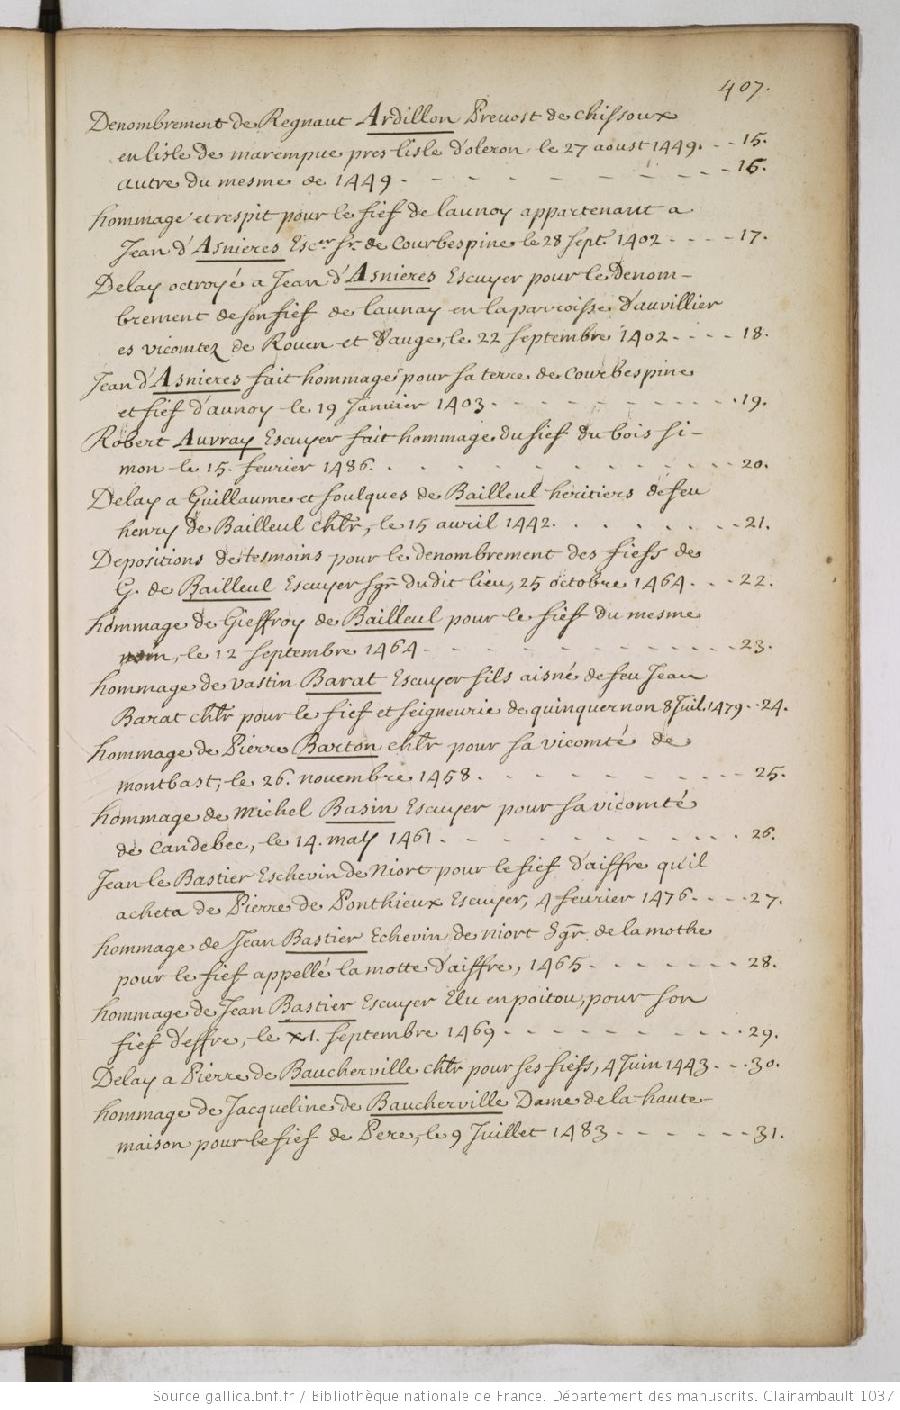 407.
Denombrement de Regnaut Ardillon Prevost de Chissoux
en lisle de marempue pres lisle d'oleron le 27 aoust 1449. - - 15.
autre du mesme de 1449 - - - - - - - - - 16.
hommage et respit pour le fief de launoy appartenant a
Jean d'Asnieres Escer. sr. de Courbespine le 28 sept. 1402 - - - - 17.
Delay octroyé a Jean d'Asnieres Escuyer pour le denom-
brement de son fief de launay en la parroisse d'auvillier
es vicomtez de Rouen et d'auge, le 22 septembre 1402 - - - - 18.
Jean d'Asnieres fait hommage pour sa terre de Courbespine
et fief d'aunoy le 19 Janvier 1403 - - - - - - - - 19.
Robert Auvray Escuyer fait hommage du fief du bois si-
mon le 15. fevrier 1486. - - - - - - - - - 20.
Delay a Guillaume et foulques de Bailleul heritiers de feu
henry de Bailleul chlr, le 15 avril 1442. - - - - - - - 21.
Depositions de tesmoins pour le denombrement des fiefs de
G. de Bailleul Escuyer sgr. dudit lieu, 25 octobre 1464 - - - 22.
hommage de Gieffroy de Bailleul pour le fief du mesme
nom, le 12 septembre 1464 - - - - - - - - - - 23.
hommage de vastin Barat Escuyer fils aisné de feu Jean
Barat chlr pour le fief et seigneurie de quinquernon 8 Juil. 1479 - - 24.
hommage de Pierre Barton chlr pour sa vicomté de
montbast, le 26. novembre 1458. - - - - - - - - 25.
hommage de Michel Basin Escuyer pour sa vicomté
de Candebec, le 14. may 1461 - - - - - - - - - 26.
Jean le Bastier Eschevin de Niort pour le fief d'aiffre qu'il
acheta de Pierre de Ponthieux Escuyer, 4 fevrier 1476 - - - - 27.
hommage de Jean Bastier Echevin de niort Sgr. de la mothe
pour le fief appellé la motte d'aiffre, 1465 - - - - - - 28.
hommage de Jean Bastier Escuyer Elu en poitou, pour son
fief d'effre, le x1. septembre 1469 - - - - - - - - 29.
Delay a Pierre de Baucherville chlr pour ses fiefs, 4 Juin 1443 - - - 30.
hommage de Jacqueline de Baucherville Dame de la haute-
maison pour le fief de Pere, le 9 Juillet 1483 - - - - - - 31.
Source gallica.bnf.fr / Bibliothèque nationale de France. Département des manuscrits. Clairambault 1037